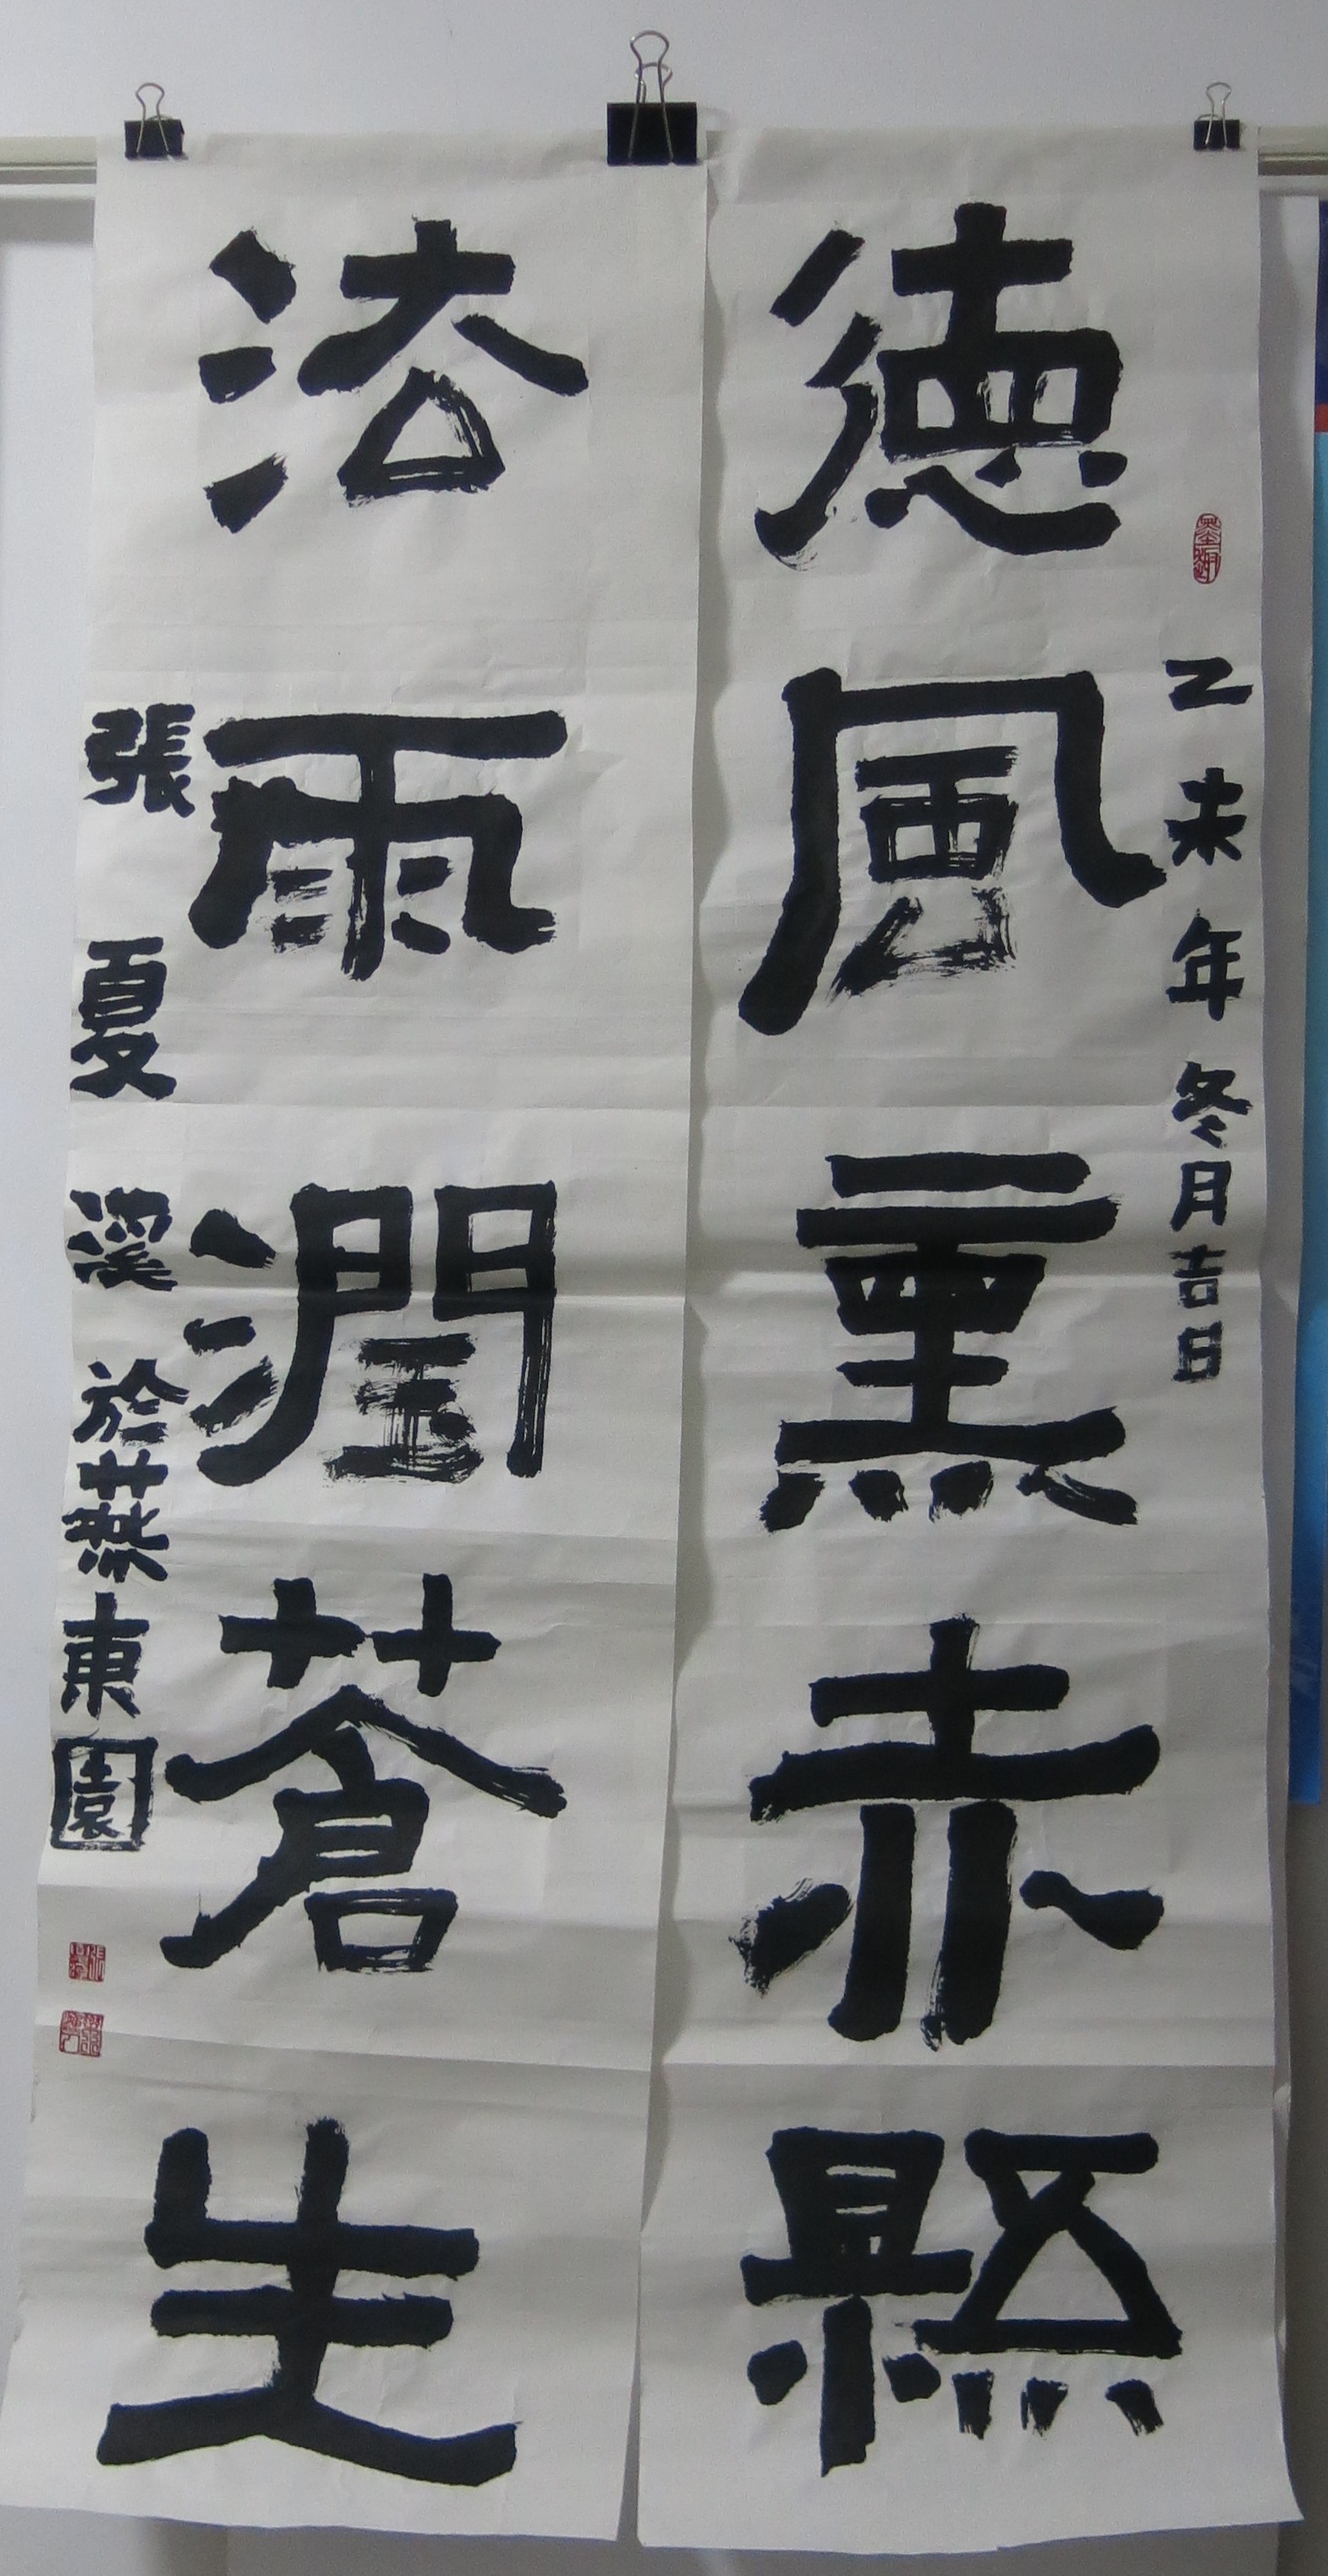 德風熏赤縣
乙未年冬月吉日
法雨潤蒼生
張夏溪於燕東園